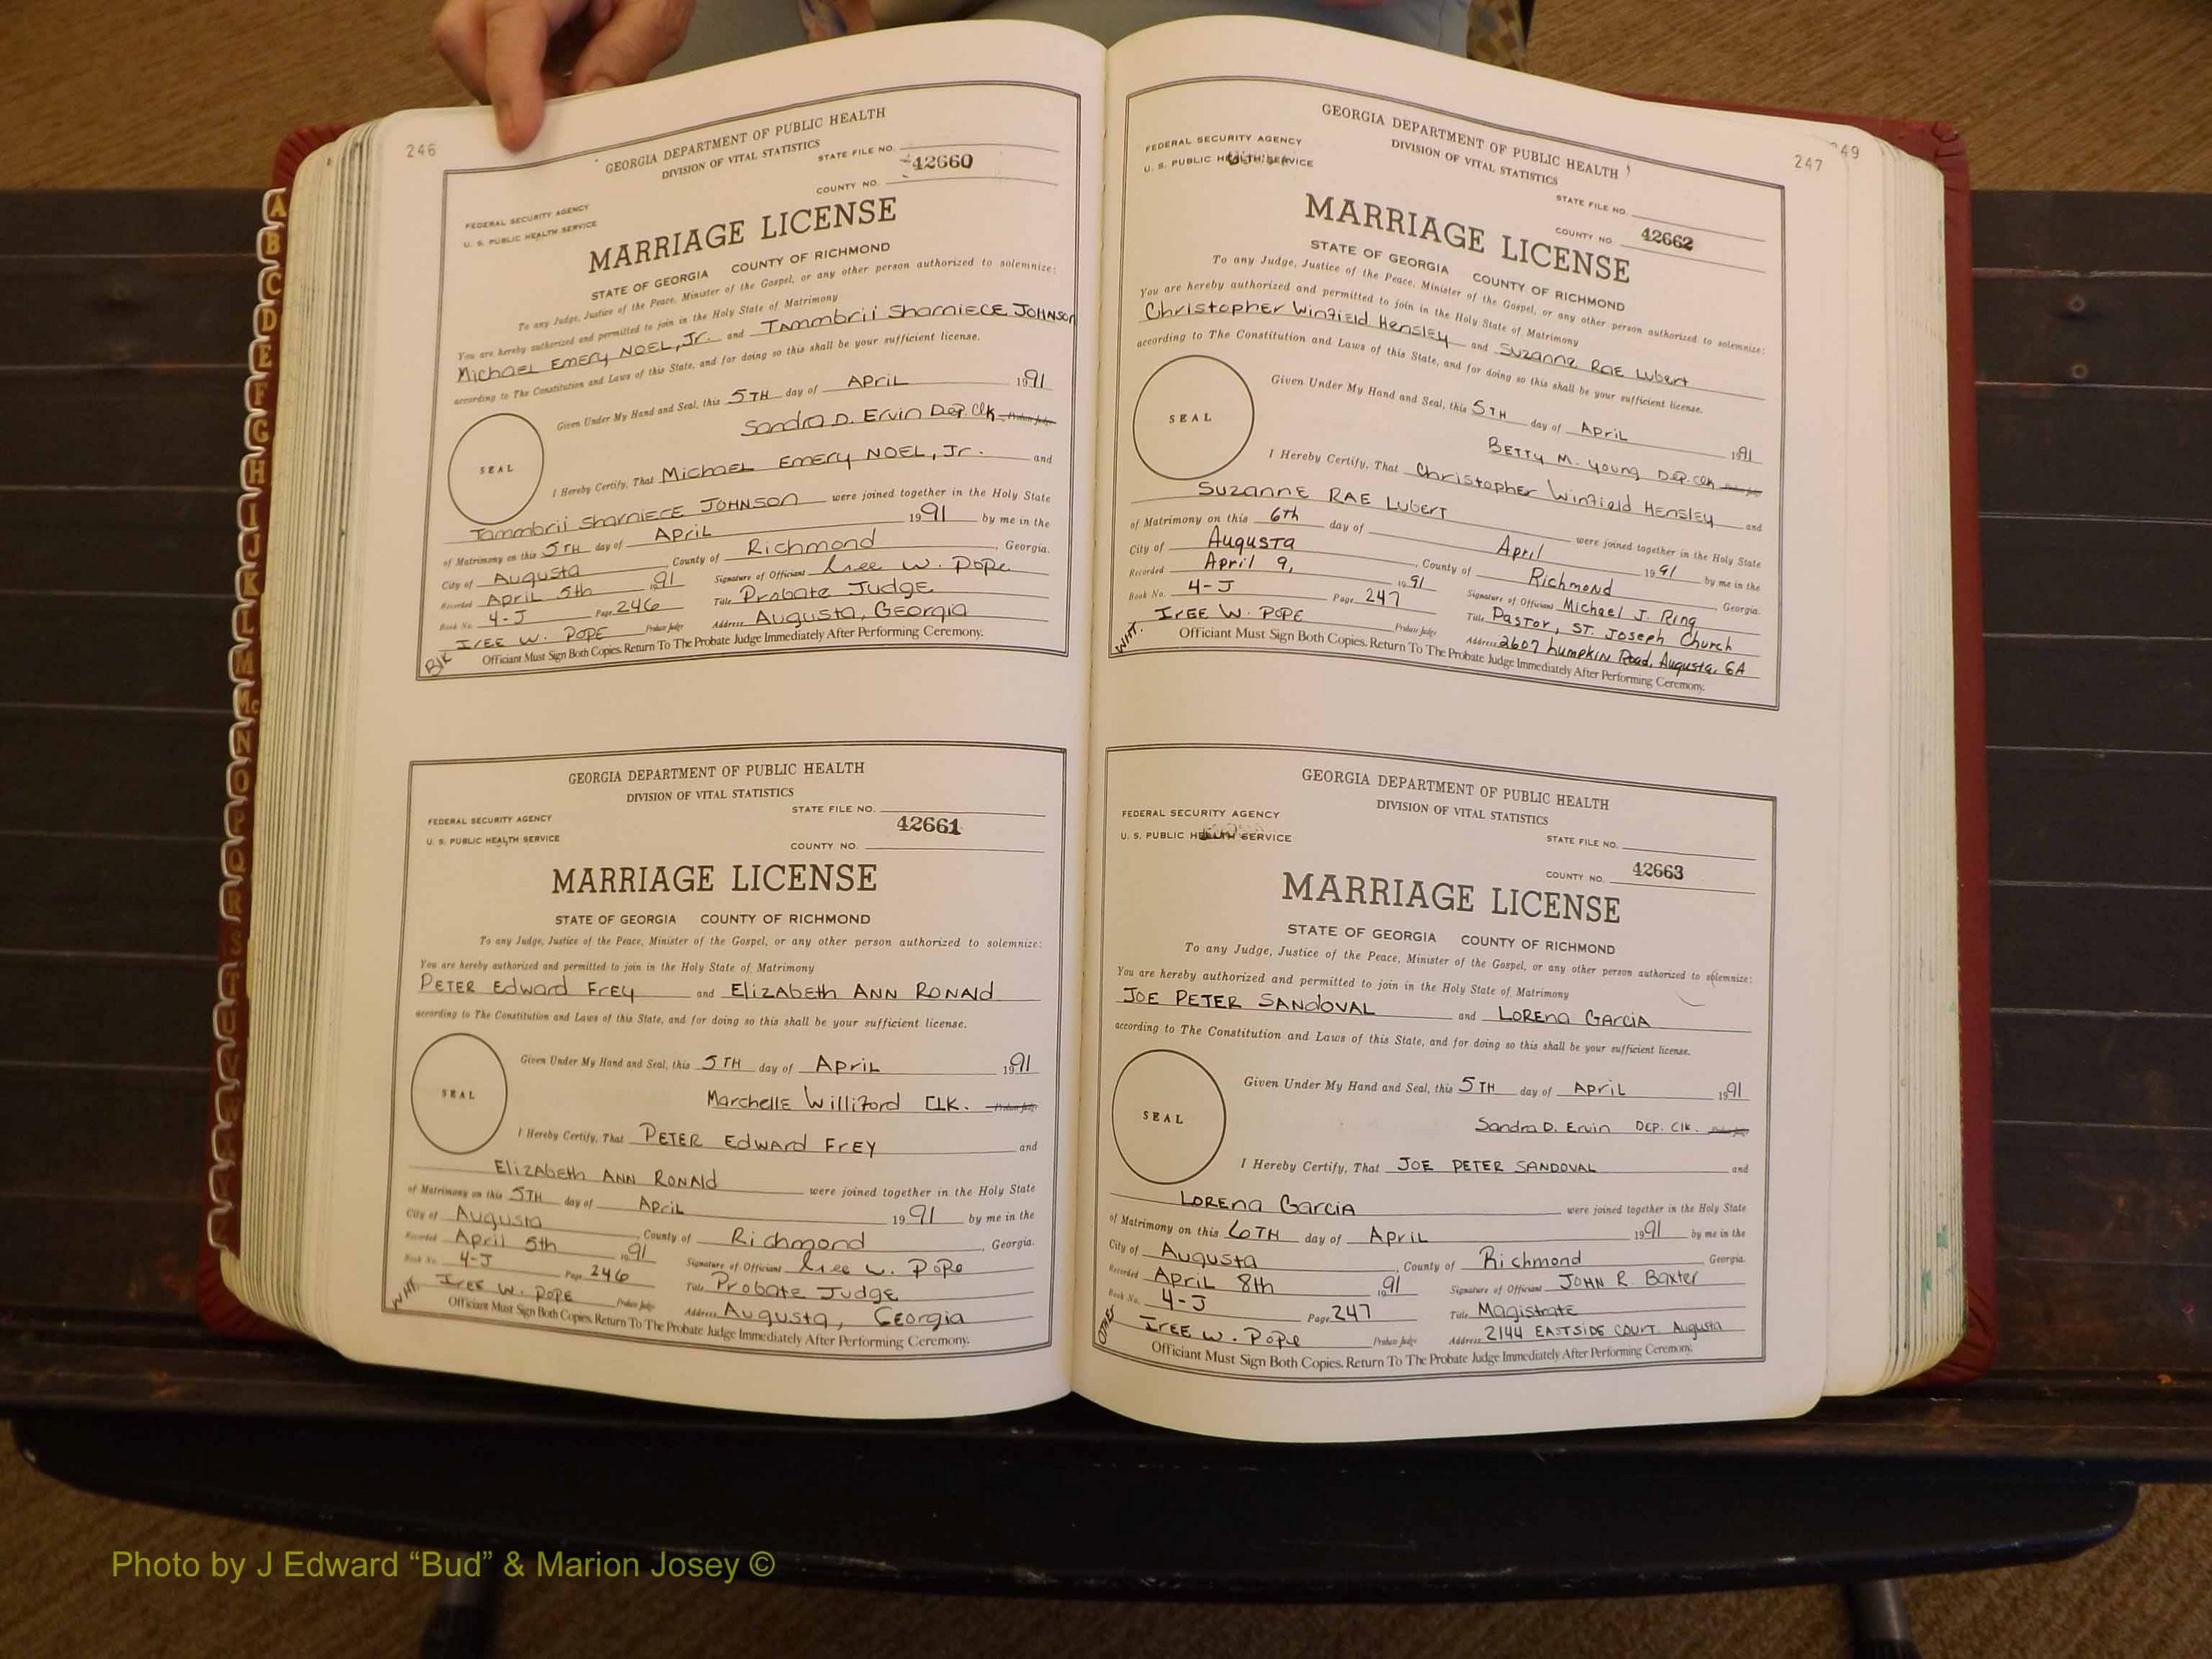 246
GEORGIA DEPARTMENT OF PUBLIC HEALTH
DIVISION OF VITAL STATISTICS
STATE FILE NO.
42660
COUNTY NO.
FEDERAL SECURITY AGENCY
U. S. PUBLIC HEALTH SERVICE
MARRIAGE LICENSE
STATE OF GEORGIA COUNTY OF RICHMOND
To any Judge, Justice of the Peace, Minister of the Gospel, or any other person authorized to solemnize:
You are hereby authorized and permitted to join in the Holy State of Matrimony
Michael Emery NOEL, Jr. and Tammbrii Sharniece JOHNSON
according to The Constitution and Laws of this State, and for doing so this shall be your sufficient license.
Given Under My Hand and Seal, this 5TH day of April 1991
Sandra D. Ervin Dep. Clk. Probate Judge
SEAL
I Hereby Certify, That Michael Emery NOEL, Jr. and
Tammbrii Sharniece JOHNSON were joined together in the Holy State
of Matrimony on this 5TH day of April 1991 by me in the
City of Augusta, County of Richmond, Georgia.
Recorded April 5th 1991 Signature of Officiant Isee W. Pope
Book No. 4-J Page 246 Title Probate Judge
IrEE W. POPE Probate Judge Address Augusta, Georgia
Officiant Must Sign Both Copies. Return To The Probate Judge Immediately After Performing Ceremony.
Blk
GEORGIA DEPARTMENT OF PUBLIC HEALTH
DIVISION OF VITAL STATISTICS
STATE FILE NO.
42661
COUNTY NO.
FEDERAL SECURITY AGENCY
U. S. PUBLIC HEALTH SERVICE
MARRIAGE LICENSE
STATE OF GEORGIA COUNTY OF RICHMOND
To any Judge, Justice of the Peace, Minister of the Gospel, or any other person authorized to solemnize:
You are hereby authorized and permitted to join in the Holy State of Matrimony
PETER Edward FrEy and ElizAbeth ANN RONAld
according to The Constitution and Laws of this State, and for doing so this shall be your sufficient license.
Given Under My Hand and Seal, this 5TH day of April 1991
Marchelle Williford CLK. Probate Judge
SEAL
I Hereby Certify, That PETER Edward FrEY and
ElizAbeth ANN RONAld were joined together in the Holy State
of Matrimony on this 5TH day of April 1991 by me in the
City of Augusta, County of Richmond, Georgia.
Recorded April 5th 1991 Signature of Officiant Isee W. Pope
Book No. 4-J Page 246 Title Probate Judge
IrEE W. POPE Probate Judge Address Augusta, Georgia
Officiant Must Sign Both Copies. Return To The Probate Judge Immediately After Performing Ceremony.
WHT.
247
249
GEORGIA DEPARTMENT OF PUBLIC HEALTH
DIVISION OF VITAL STATISTICS
FEDERAL SECURITY AGENCY
U. S. PUBLIC HEALTH SERVICE
STATE FILE NO.
COUNTY NO. 42662
MARRIAGE LICENSE
STATE OF GEORGIA COUNTY OF RICHMOND
To any Judge, Justice of the Peace, Minister of the Gospel, or any other person authorized to solemnize:
You are hereby authorized and permitted to join in the Holy State of Matrimony
Christopher Winfield Hensley and Suzanne RAE Lubert
according to The Constitution and Laws of this State, and for doing so this shall be your sufficient license.
Given Under My Hand and Seal, this 5TH day of April 1991
BETTY M. Young Dep. Clk Probate Judge
SEAL
I Hereby Certify, That Christopher Winfield Hensley and
SuzannE RAE Lubert were joined together in the Holy State
of Matrimony on this 6th day of April 1991 by me in the
City of Augusta, County of Richmond, Georgia.
Recorded April 9, 1991 Signature of Officiant Michael J. Ring
Book No. 4-J Page 247 Title Pastor, ST. Joseph Church
IrEE W. POPE Probate Judge Address 2607 Lumpkin Road, Augusta, GA
Officiant Must Sign Both Copies. Return To The Probate Judge Immediately After Performing Ceremony.
WHT.
GEORGIA DEPARTMENT OF PUBLIC HEALTH
DIVISION OF VITAL STATISTICS
FEDERAL SECURITY AGENCY
U. S. PUBLIC HEALTH SERVICE
STATE FILE NO.
COUNTY NO. 42663
MARRIAGE LICENSE
STATE OF GEORGIA COUNTY OF RICHMOND
To any Judge, Justice of the Peace, Minister of the Gospel, or any other person authorized to solemnize:
You are hereby authorized and permitted to join in the Holy State of Matrimony
JOE PETER SANdOVAL and LORENA GARCIA
according to The Constitution and Laws of this State, and for doing so this shall be your sufficient license.
Given Under My Hand and Seal, this 5TH day of April 1991
Sandra D. Ervin DEP. Clk. Probate Judge
SEAL
I Hereby Certify, That JOE PETER SANDOVAL and
LORENA GarciA were joined together in the Holy State
of Matrimony on this 6TH day of April 1991 by me in the
City of Augusta, County of Richmond Georgia.
Recorded April 8th 1991 Signature of Officiant JOHN R. Baxter
Book No. 4-J Page 247 Title Magistrate
IrEE W. Pope Probate Judge Address 2144 EASTSIDE COURT. Augusta
Officiant Must Sign Both Copies. Return To The Probate Judge Immediately After Performing Ceremony.
OTHER
A
B
C
D
E
F
G
H
I
J
K
L
M
Mc
N
O
P
Q
R
S
T
U
V
W
Photo by J Edward “Bud” & Marion Josey ©